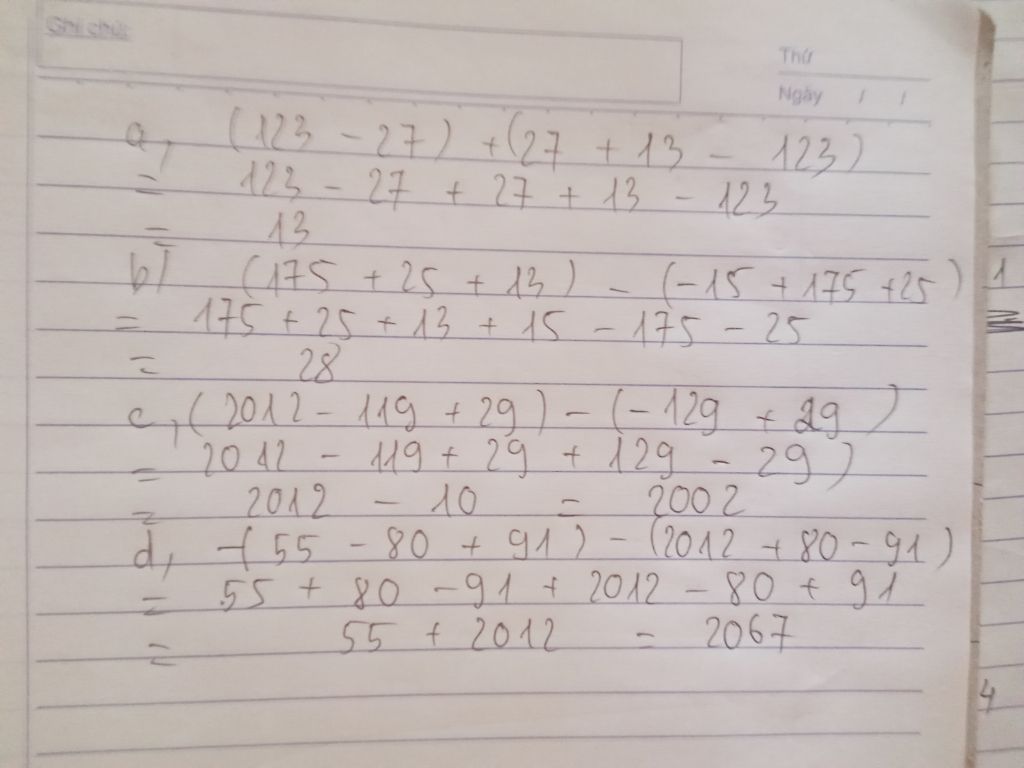 Ghi chú:
Thứ
Ngày / /
a, (123 - 27) + (27 + 13 - 123)
= 123 - 27 + 27 + 13 - 123
= 13
b) (175 + 25 + 13) - (-15 + 175 + 25)
= 175 + 25 + 13 + 15 - 175 - 25
= 28
c, (2012 - 119 + 29) - (-129 + 29)
= 2012 - 119 + 29 + 129 - 29)
= 2012 - 10 = 2002
d, -(55 - 80 + 91) - (2012 + 80 - 91)
= 55 + 80 - 91 + 2012 - 80 + 91
= 55 + 2012 = 2067
1
4